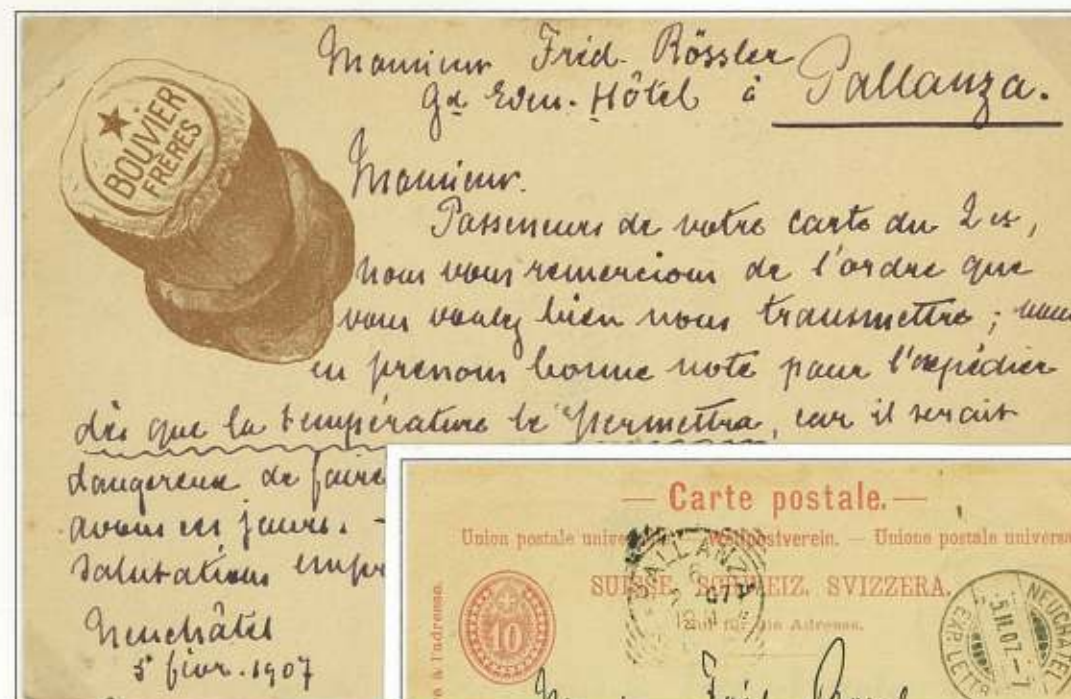 Monsieur Fréd. Rössler
Gd Eden-Hôtel à Pallanza.
★ BOUVIER
FRÈRES
Monsieur.
Possesseurs de votre carte du 2 ct,
nous vous remercions de l'ordre que
vous voulez bien nous transmettre ; nous
en prenons bonne note pour l'expédier
dès que la température le permettra, car il serait
dangereux de faire
avons ces jours. -
Salutations empr
Neuchâtel
5 févr. 1907
— Carte postale. —
Union postale unive Weltpostverein. — Unione postale universa
SUISSE. SCHWEIZ. SVIZZERA.
Nur für die Adresse.
é à l'adresse.
10
PALLANZA
07
NEUCHATEL
5.II.07.-7
EXP. LETT
Monsieur Fréd.